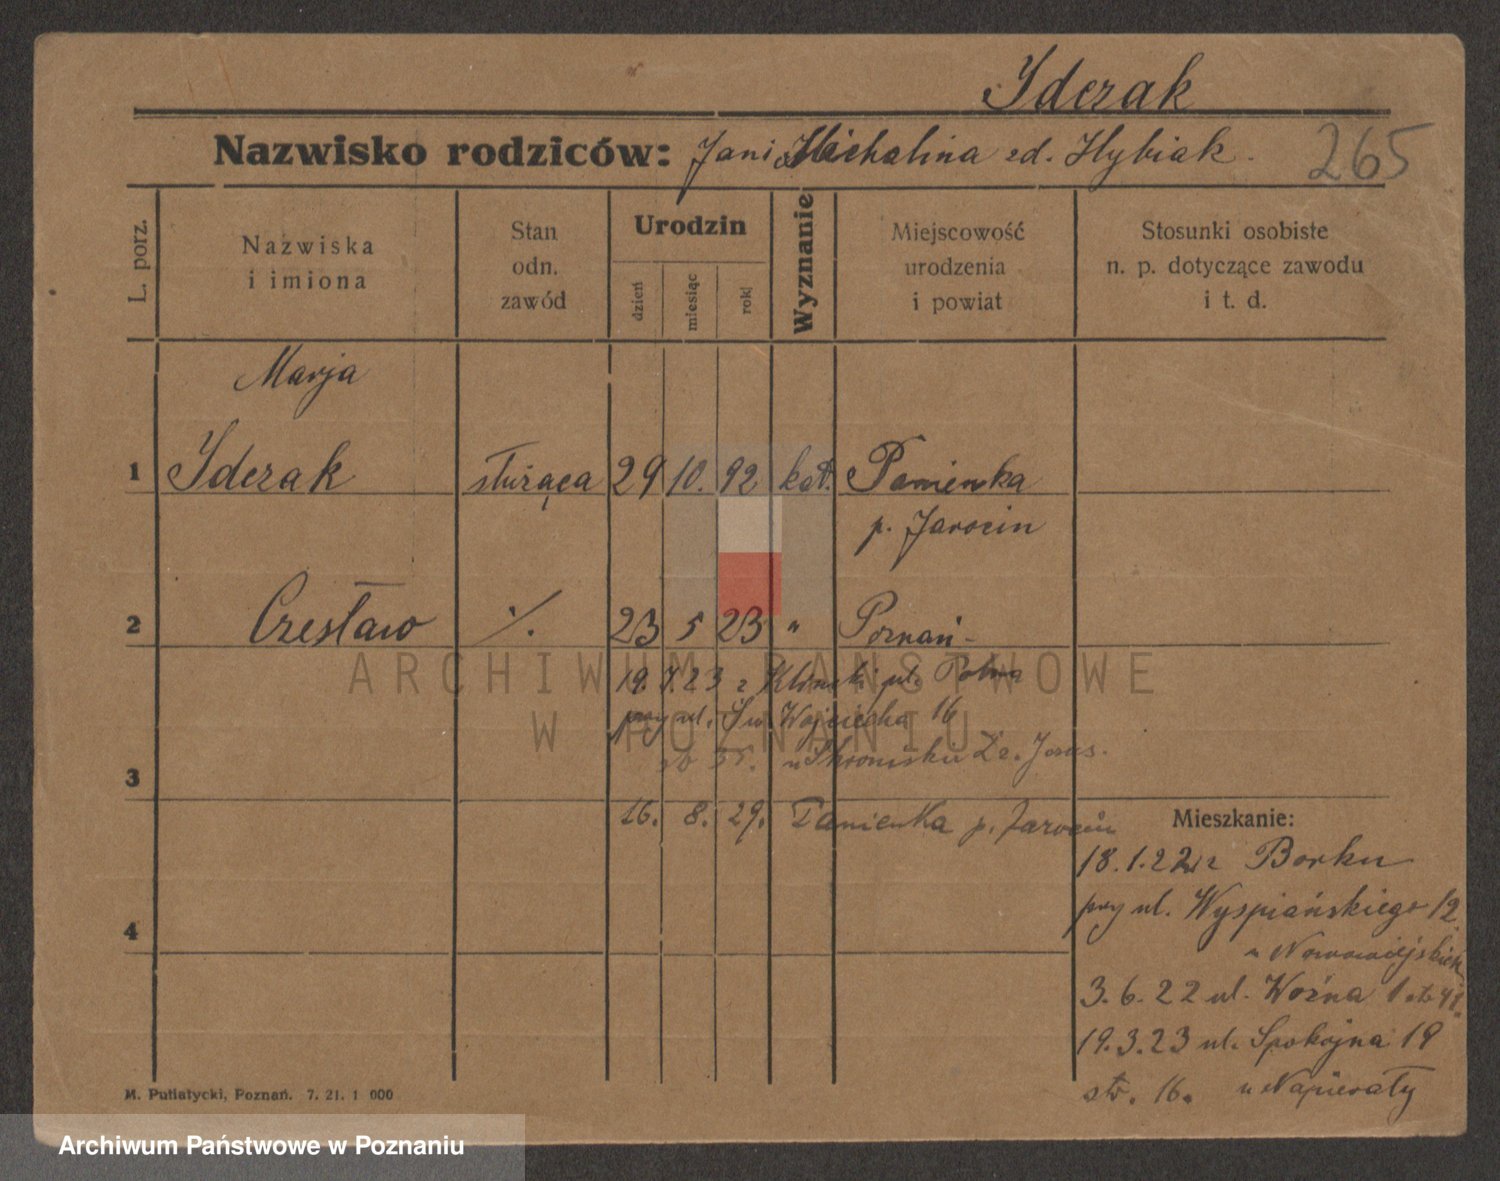 Iderak
Nazwisko rodziców: Jan i Michalina zd. Hybiak.
265
L. porz.
Nazwiska
i imiona
Stan
odn.
zawód
Urodzin
dzień
miesiąc
rok
Wyznanie
Miejscowość
urodzenia
i powiat
Stosunki osobiste
n. p. dotyczące zawodu
i t. d.
Marja
1 Iderak służąca 29 10. 92 kat. Panienka
p. Jarocin
2 Czesław ./. 23 5 23 " Poznań
19. 23 z ul. Polna
przy ul. Św. Wojciecha 16
3
16. 8. 29. Panienka p. Jarocin
Mieszkanie:
18.1.22 z Borku
przy ul. Wyspiańskiego 12
4
u Nowowiejskich
3.6.22 ul. Woźna 1
19.3.23 ul. Spokojna 19
str. 16. u Napierały
M. Putiatycki, Poznań. 7. 21. 1 000
ARCHIWUM PAŃSTWOWE
W POZNANIU
Archiwum Państwowe w Poznaniu